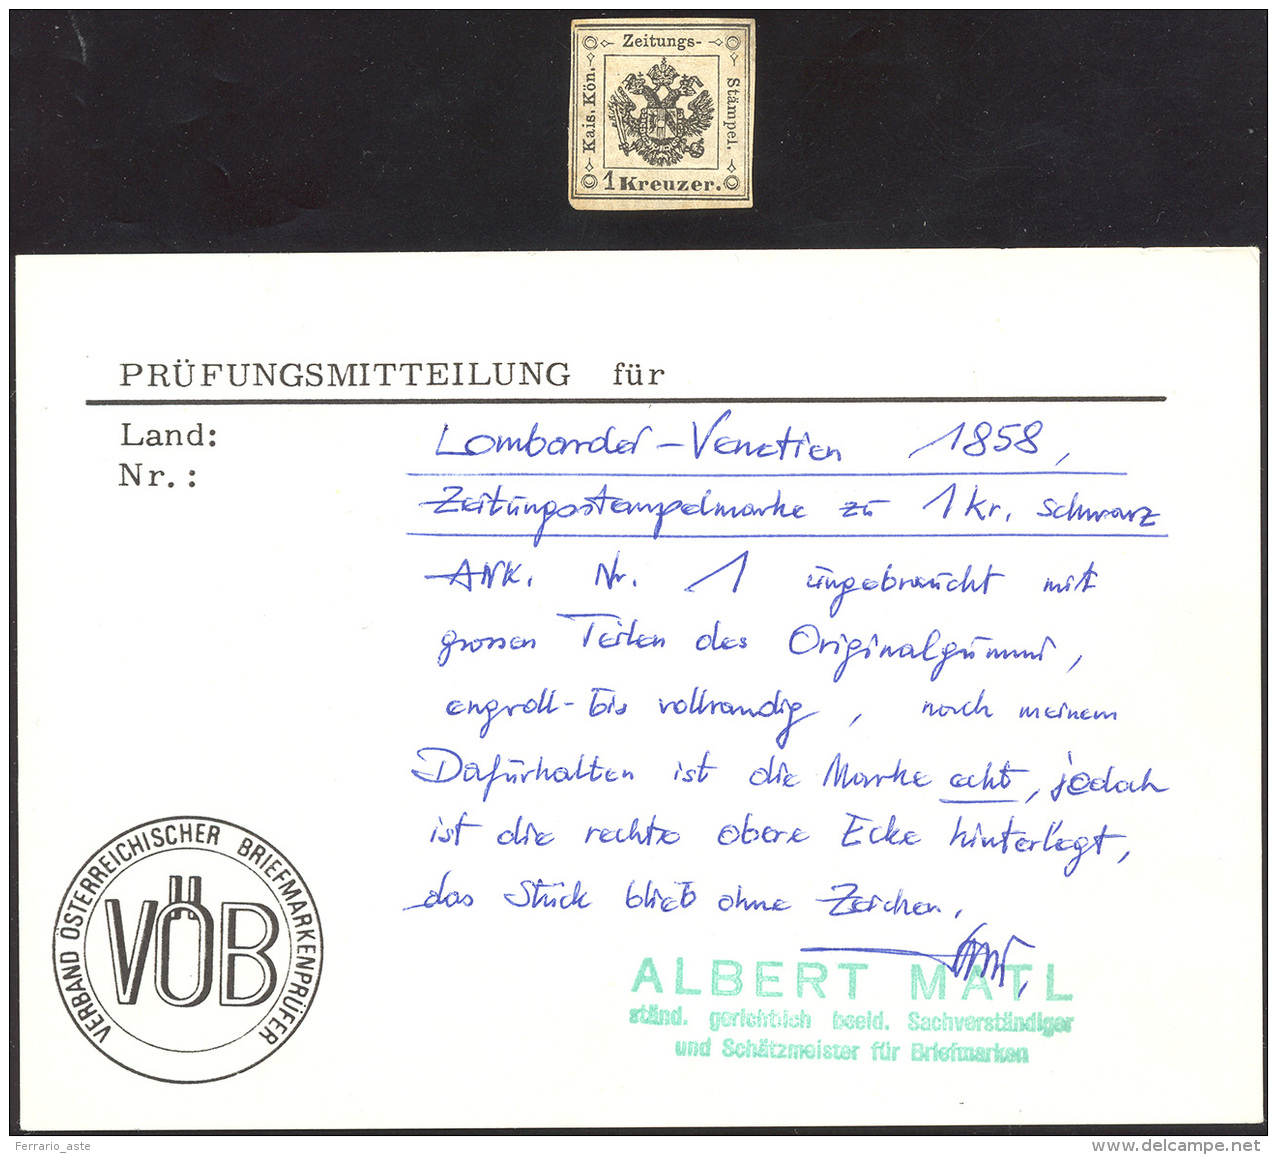 Zeitungs-
Kais. Kön.
Stämpel.
1 Kreuzer.
PRÜFUNGSMITTEILUNG für
Land: Lombardei-Venetien 1858,
Nr.: Zeitungsstempelmarke zu 1 kr. schwarz
ANK. Nr. 1 ungebraucht mit
grossen Teilen des Originalgummi,
engroll- bis vollrandig, nach meinem
Dafürhalten ist die Marke echt, jedoch
ist die rechte obere Ecke hinterlegt,
das Stück blieb ohne Zeichen.
ALBERT MATL
ständ. gerichtlich beeid. Sachverständiger
und Schätzmeister für Briefmarken
VERBAND ÖSTERREICHISCHER BRIEFMARKENPRÜFER
VÖB
Ferrario_aste
www.delcampe.net